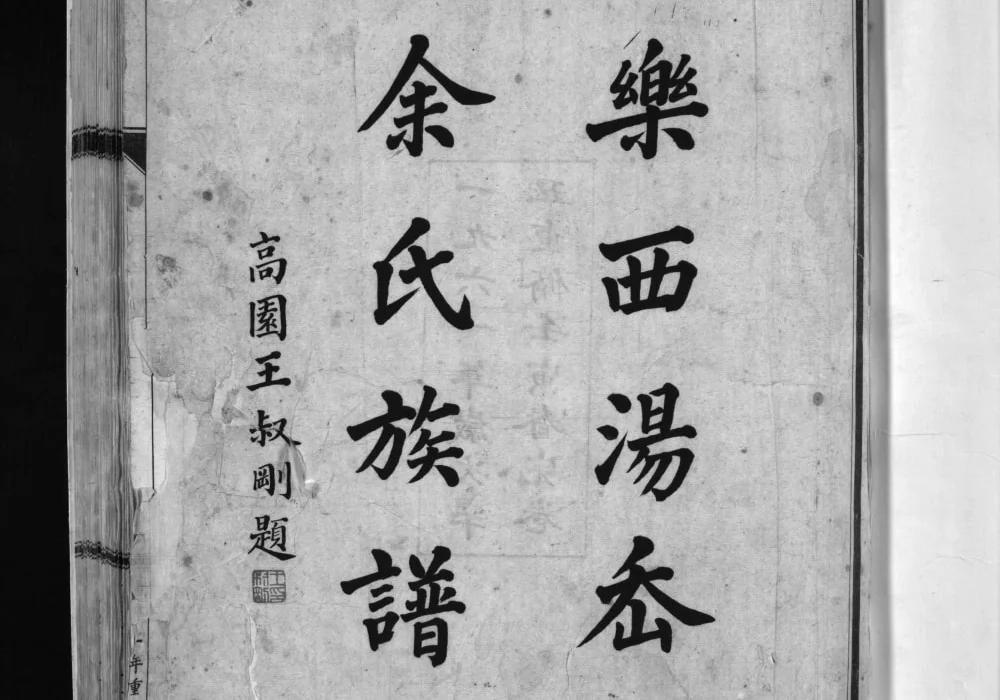 樂西湯岙
余氏族譜
高園王叔剛題
年重